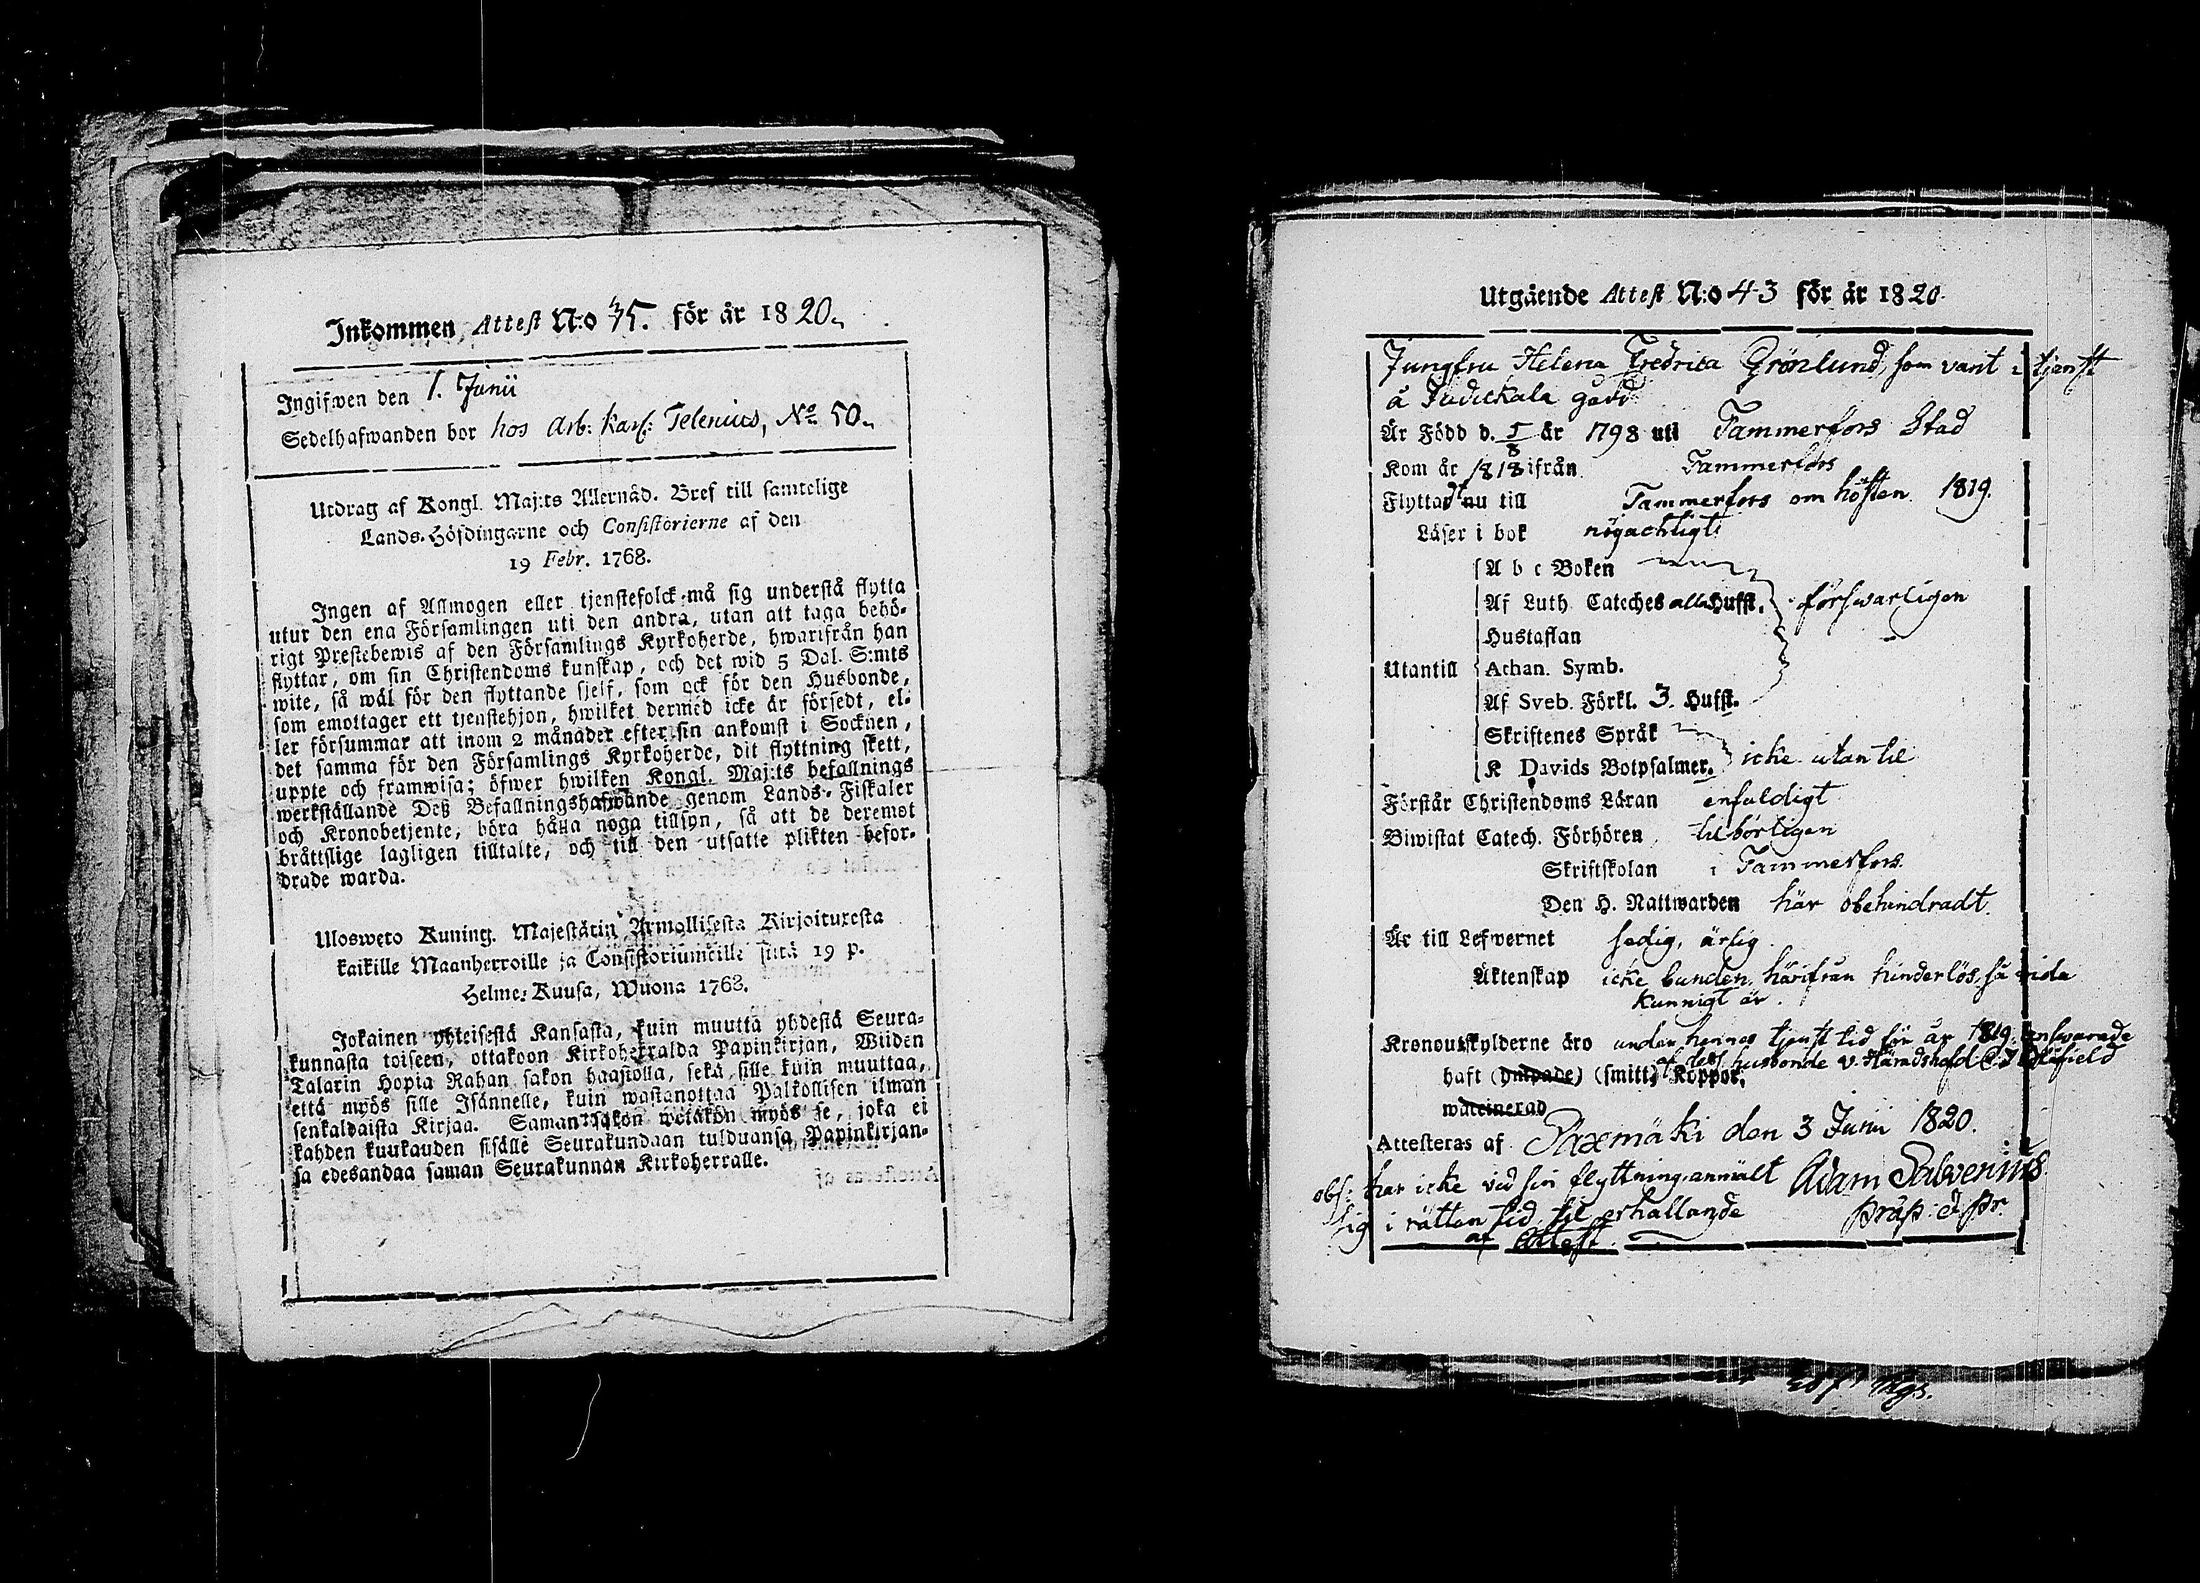 Inkommen Attest N:o 45. för år 1820.
Ingifwen den 1. Junii
Sedelhafwanden bor hos Arb: Karl: Telenius, No 50.
Utdrag af Kongl. Maj:ts Allernåd. Bref till samtelige
Lands-Höfdingarne och Consistorierne af den
19 Febr. 1768.
Ingen af Allmogen eller tjenstefolck må sig understå flytta
utur den ena Församlingen uti den andra, utan att taga behö-
rigt Prestebewis af den Församlings Kyrkoherde, hwarifrån han
flyttar, om sin Christendoms kunskap, och det wid 5 Dal. S:mts
wite, så wäl för den flyttande sjelf, som ock för den Husbonde,
som emottager ett tjenstehjon, hwilket dermed icke är försedt, el-
ler försummar att inom 2 månader efter sin ankomst i Socknen,
det samma för den Församlings Kyrkoherde, dit flyttning skett,
uppte och framwisa; öfwer hwilken Kongl. Maj:ts befallnings
werkställande Deß Befallningshafwande genom Lands-Fiskaler
och Kronobetjente, böra hålla noga tillsyn, så att de deremot
bråttslige lagligen tilltalte, och till den utsatte plikten befor-
drade warda.
Ulosweto Kuning. Majestätin Armollisesta Kirjoituxesta
kaikille Maanherroille ja Consistoriumeille siitä 19 p.
Helme-Kuusa, Wuona 1768.
Jokainen yhteisestä Kansasta, kuin muutta yhdestä Seura-
kunnasta toiseen, ottakoon Kirkoherralda Papinkirjan, Wiiden
Talarin Hopia Rahan sakon haastolla, sekä sille kuin muuttaa,
että myös sille Isännelle, kuin wastanottaa Palkollisen ilman
senkaldaista Kirjaa. Saman sakon wetäkön myös se, joka ei
kahden kuukauden sisälle Seurakundaan tulduansa Papinkirjan-
sa edesandaa saman Seurakunnan Kirkoherralle.
Utgående Attest N:o 43 för år 1820.
Jungfru Helena Fredrica Grönlund, som varit i tjenst
å Judickala gård
Är Född d. 5/8 år 1798 uti Tammerfors Stad
Kom år 1818 ifrån Tammerfors
Flyttadt nu till Tammerfors om hösten 1819.
Läser i bok nögachtligt
A b c Boken
Af Luth Cateches alla Hufst. försvarligen
Hustaflan
Utantill Athan. Symb.
Af Sveb. Förkl. 3. Hufst.
Skriftenes Språk
K Davids Botpsalmer. icke utantil
Förstår Christendoms Läran enfaldigt
Biwistat Catech. Förhören tilbörligen
Skriftskolan i Tammerfors
Den H. Nattwarden här obehindradt.
Är till Lefwernet sedig, ärlig.
Äktenskap icke bunden, härifrån hinderlös, så vida
kunnigt är.
Kronoutskylderne äro under hennes tjenst tid för år 1819. ansvarade
af dess husbonde v. Häradshöfd
haft (hulpade) (smitt) Koppor.
waccinerad
Attesteras af Sääxmäki den 3 Junii 1820.
obs: har icke vid sin flyttning anmält Adam Salvenius
sig i rättan tid til erhållande pråp: &
af Attest.